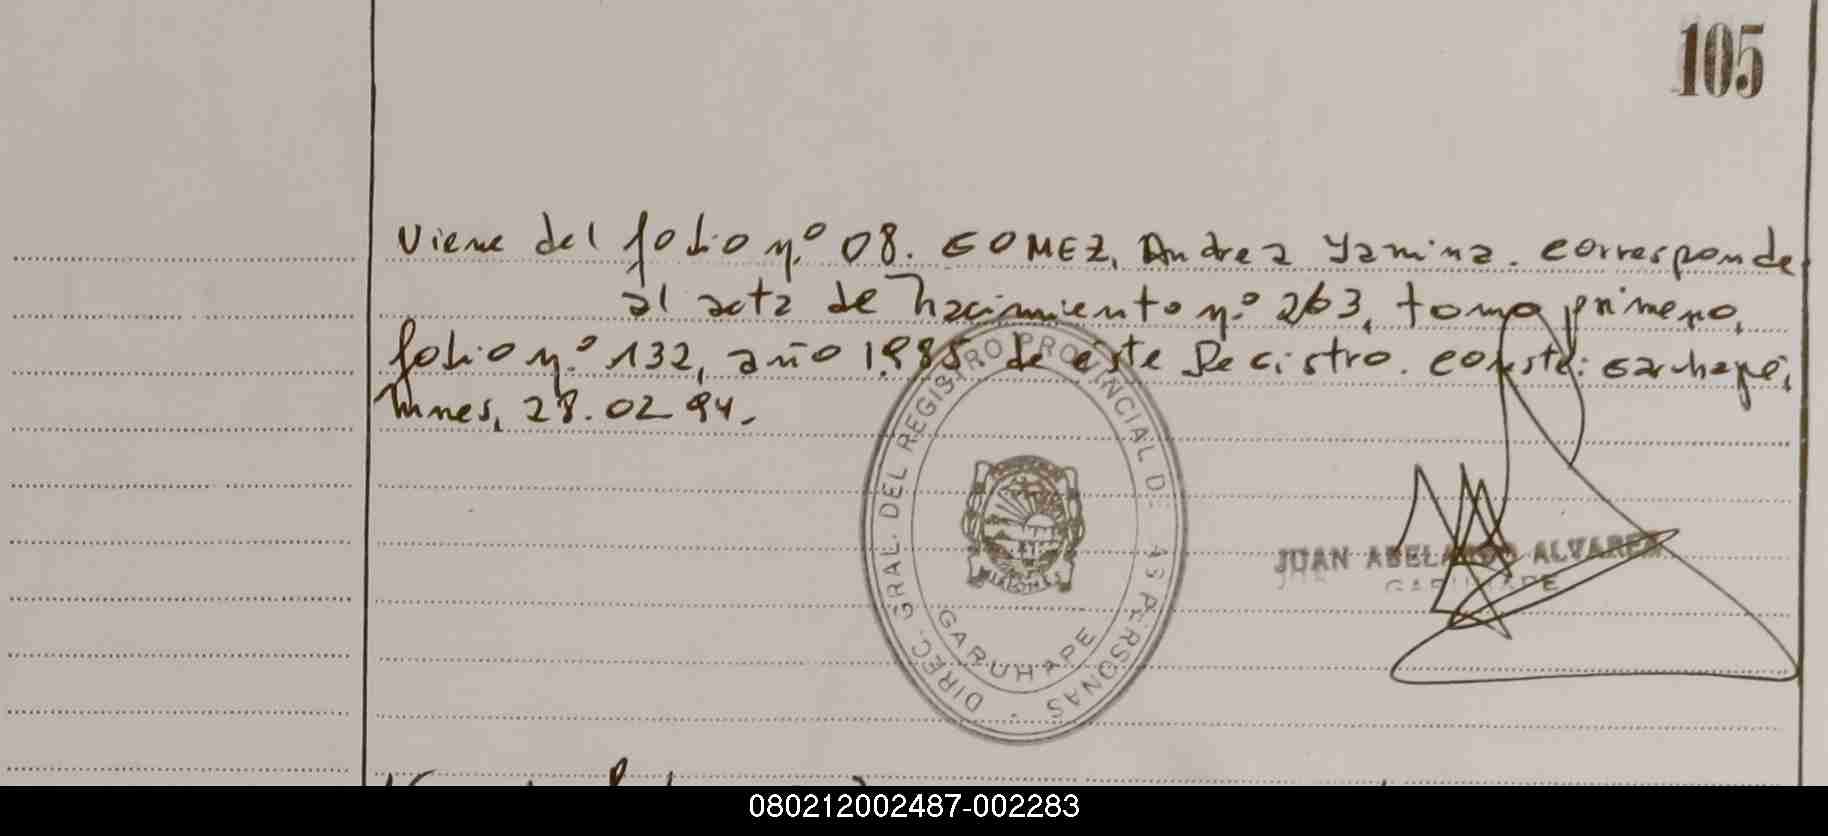 105
Viene del folio n.º 08. GOMEZ, Andrea Yamina. corresponde
al acta de nacimiento n.º 263, tomo primero,
folio n.º 132, año 1.985 de este Registro. conste: Garuhapé,
Mnes, 28.02 94.
DIREC. GRAL. DEL REGISTRO PROVINCIAL DE LAS PERSONAS
MISIONES
GARUHAPE
JUAN ABELARDO ALVAREZ
GARUHAPE
080212002487-002283